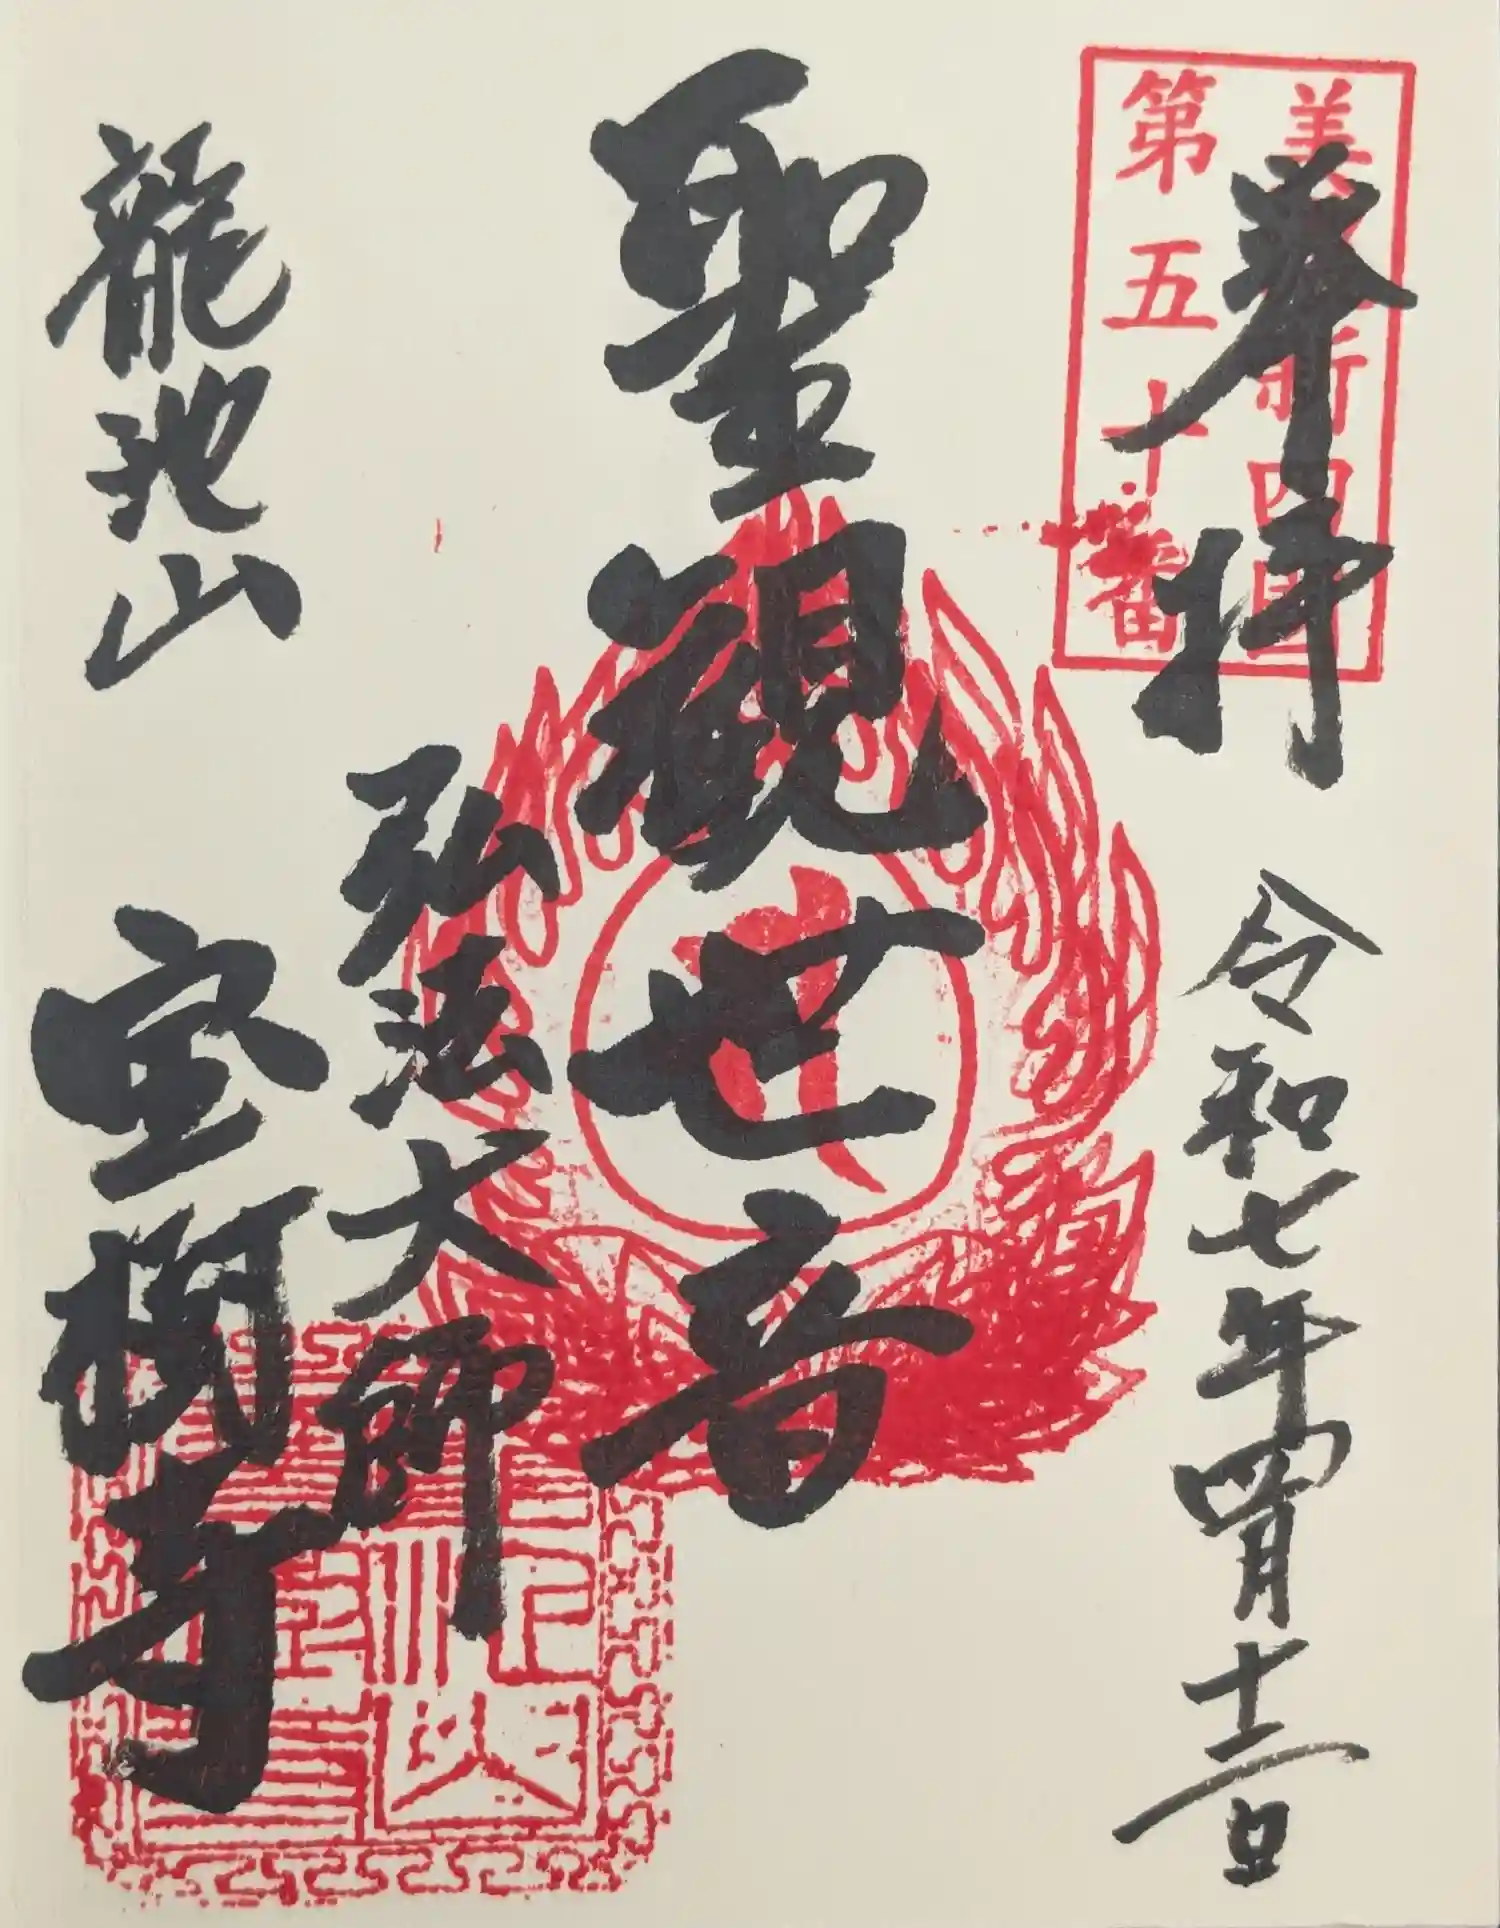 奉拝
美濃新四国
第五十番
令和七年四月十二日
聖観世音
弘法大師
龍池山
宝樹寺